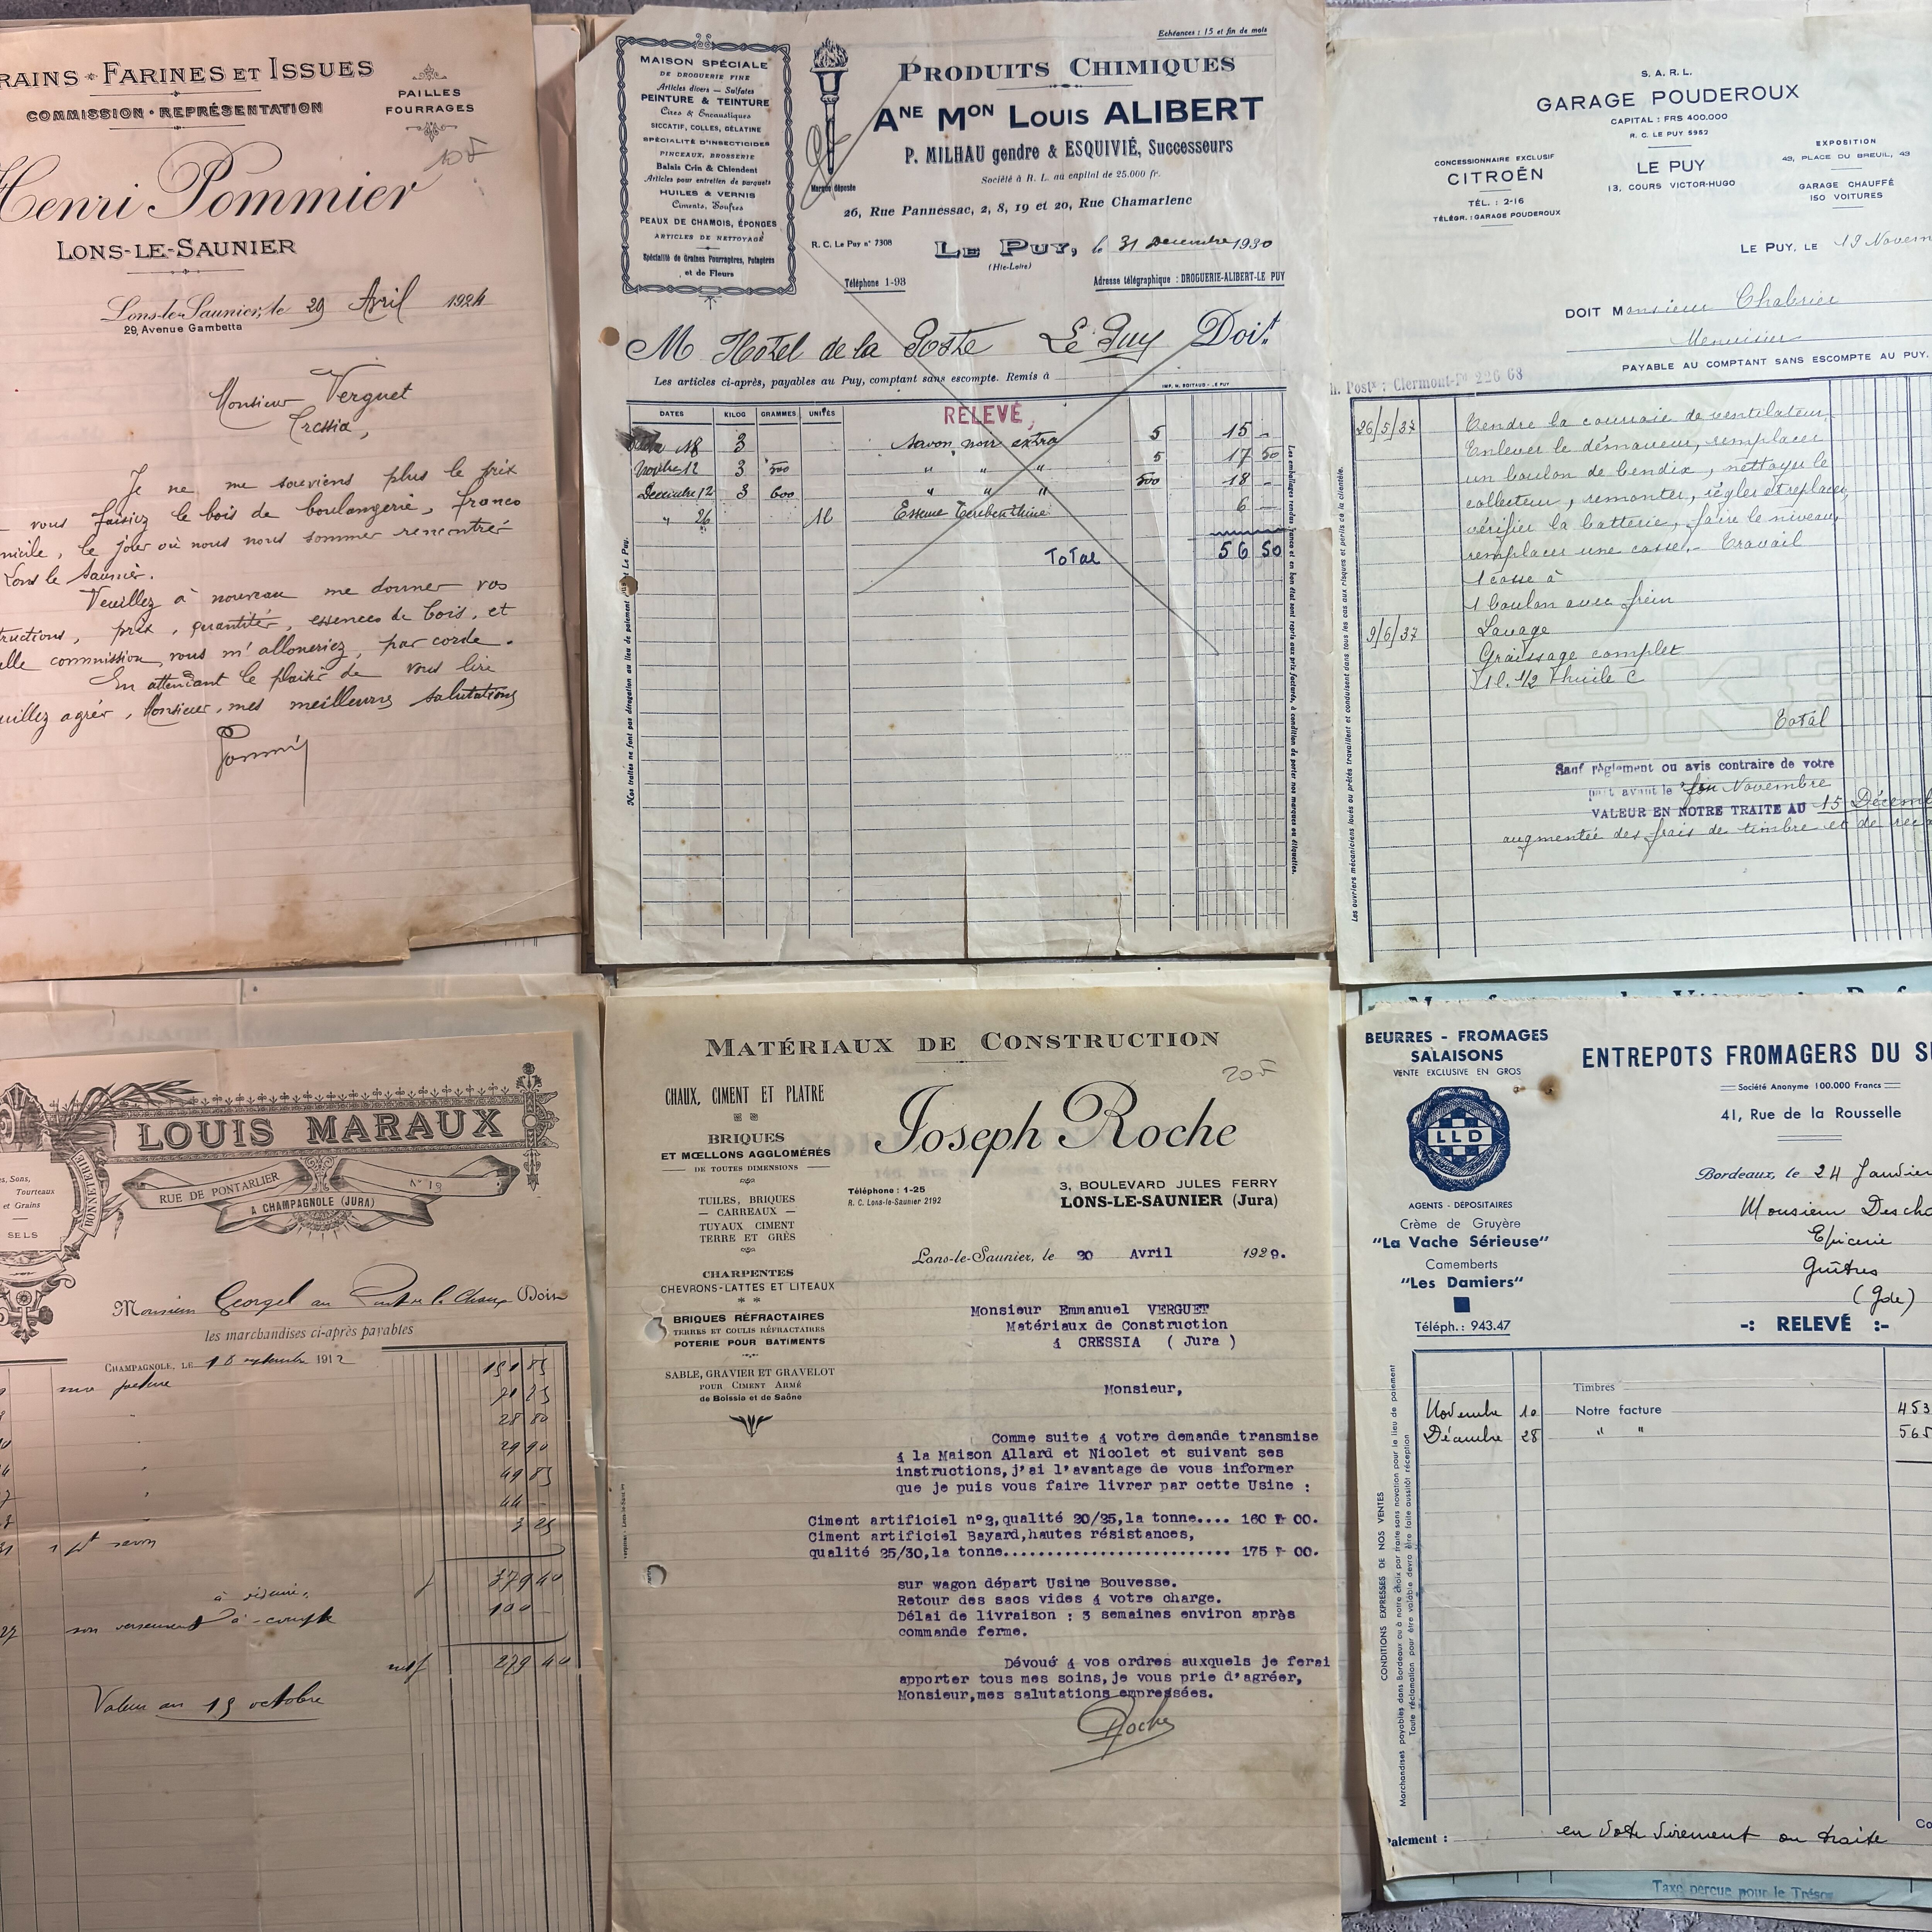 RAINS • FARINES ET ISSUES
COMMISSION • REPRÉSENTATION
PAILLES
FOURRAGES
10 F
Henri Pommier
LONS-LE-SAUNIER
Lons-le-Saunier, le 29 Avril 1924
29, Avenue Gambetta
Monsieur Verguet
Cressia,
Je ne me souviens plus le prix
vous faisiez le bois de boulangerie, franco
micile, le jour où nous nous sommes rencontré
Lons le Saunier.
Veuillez à nouveau me donner vos
tructions, prix, quantité, essences de bois, et
elle commission vous m'alloueriez, par corde.
En attendant le plaisir de vous lire
uillez agréer, Monsieur, mes meilleures salutations
Echéances : 15 et fin de mois
MAISON SPÉCIALE
DE DROGUERIE FINE
Articles divers — Sulfates
PEINTURE & TEINTURE
Cires & Encaustiques
SICCATIF, COLLES, GÉLATINE
SPÉCIALITÉ D'INSECTICIDES
PINCEAUX, BROSSERIE
Balais Crin & Chiendent
Articles pour entretien de parquets
HUILES & VERNIS
Ciments, Soufres
PEAUX DE CHAMOIS, ÉPONGES
ARTICLES DE NETTOYAGE
Spécialité de Graines Fourragères, Potagères
et de Fleurs
Marque déposée
PRODUITS CHIMIQUES
ANE MON LOUIS ALIBERT
P. MILHAU gendre & ESQUIVIÉ, Successeurs
Société à R. L. au capital de 25.000 fr.
26, Rue Pannessac, 2, 8, 19 et 20, Rue Chamarlenc
R. C. Le Puy n° 7308
LE PUY, le 31 Decembre 1930
(Hte-Loire)
Téléphone 1-93
Adresse télégraphique : DROGUERIE-ALIBERT-LE PUY
M Hôtel de la Poste Le Puy Doit
Les articles ci-après, payables au Puy, comptant sans escompte. Remis à
IMP. H. BOITAUD - LE PUY
DATES KILOG GRAMMES UNITÉS
RELEVÉ
18 3 Savon noir extra 5 15 –
Novbre 12 3 500 " " " 5 17 50
Decembre 12 3 600 " " " 500 18 –
" 26 Essence Terebenthine 6 –
Total 56 50
S. A. R. L.
GARAGE POUDEROUX
CAPITAL : FRS 400.000
R. C. LE PUY 5952
CONCESSIONNAIRE EXCLUSIF
CITROËN
TÉL. : 2-16
TÉLÉGR. : GARAGE POUDEROUX
LE PUY
13, COURS VICTOR-HUGO
EXPOSITION
43, PLACE DU BREUIL, 43
GARAGE CHAUFFÉ
150 VOITURES
LE PUY, LE 19 Novem
DOIT Monsieur Chabrier
Menuisier
PAYABLE AU COMPTANT SANS ESCOMPTE AU PUY.
h. Postx : Clermont-Fd 226 68
Les ouvriers mécaniciens loués ou prêtés travaillent et conduisent dans tous les cas aux risques et périls de la clientèle.
26/5/37 Tendre la courroie de ventilateur,
Enlever le démarreur, remplacer
un boulon de bendix, nettoyer le
collecteur, remonter, régler et replacer,
vérifier la batterie, faire le niveau,
remplacer une cosse. – Travail
1 cosse à
1 boulon avec frein
9/6/37 Lavage
Graissage complet
1/2 d'huile C
Total
Sauf règlement ou avis contraire de votre
part avant le fin Novembre
VALEUR EN NOTRE TRAITE AU 15 Décem
augmentée des frais de timbre et de rec
LOUIS MARAUX
RUE DE PONTARLIER
N° 13
A CHAMPAGNOLE (JURA)
BONNETERIE
es, Sons,
Tourteaux
et Grains
SELS
Monsieur Georgel au Pont de la Chaux Doit
les marchandises ci-après payables
CHAMPAGNOLE, LE 1912
ma facture 191 85
28 80
29 90
49 85
44 –
3 25
379 40
à déduire,
27 son versement à-compte 100
net 279 40
Valeur au 15 octobre
MATÉRIAUX DE CONSTRUCTION
20 F
CHAUX, CIMENT ET PLATRE
BRIQUES
ET MŒLLONS AGGLOMÉRÉS
DE TOUTES DIMENSIONS
TUILES, BRIQUES
— CARREAUX —
TUYAUX CIMENT
TERRE ET GRÈS
CHARPENTES
CHEVRONS-LATTES ET LITEAUX
BRIQUES RÉFRACTAIRES
TERRES ET COULIS RÉFRACTAIRES
POTERIE POUR BATIMENTS
SABLE, GRAVIER ET GRAVELOT
POUR CIMENT ARMÉ
de Boissia et de Saône
Joseph Roche
Téléphone : 1-25
R. C. Lons-le-Saunier 2192
3, BOULEVARD JULES FERRY
LONS-LE-SAUNIER (Jura)
Lons-le-Saunier, le 20 Avril 1929.
Monsieur Emmanuel VERGUET
Matériaux de Construction
à CRESSIA ( Jura )
Monsieur,
Comme suite à votre demande transmise
à la Maison Allard et Nicolet et suivant ses
instructions,j'ai l'avantage de vous informer
que je puis vous faire livrer par cette Usine :
Ciment artificiel n°2,qualité 20/25,la tonne.... 160 F 00.
Ciment artificiel Bayard,hautes résistances,
qualité 25/30,la tonne............................ 175 F 00.
sur wagon départ Usine Bouvesse.
Retour des sacs vides à votre charge.
Délai de livraison : 3 semaines environ après
commande ferme.
Dévoué à vos ordres auxquels je ferai
apporter tous mes soins,je vous prie d'agréer,
Monsieur,mes salutations empressées.
Roche
BEURRES - FROMAGES
SALAISONS
VENTE EXCLUSIVE EN GROS
LLD
AGENTS - DÉPOSITAIRES
Crème de Gruyère
"La Vache Sérieuse"
Camemberts
"Les Damiers"
Téléph. : 943.47
ENTREPOTS FROMAGERS DU S
Société Anonyme 100.000 Francs
41, Rue de la Rousselle
Bordeaux, le 24 Janvier
Monsieur Descha
Epicerie
Guîtres
(Gde)
-: RELEVÉ :-
CONDITIONS EXPRESSES DE NOS VENTES
Marchandises payables dans Bordeaux ou à notre choix par traite sans novation pour le lieu de paiement
Toute réclamation pour être valable devra être faite aussitôt réception
Timbres
Novembre 10 Notre facture 453
Décembre 28 " " 565
Paiement : en votre virement ou traite
Co
Taxe perçue pour le Trésor